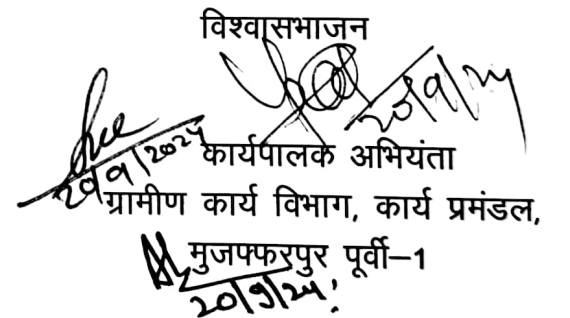 विश्वासभाजन
20/9/24
20/9/2024
कार्यपालक अभियंता
ग्रामीण कार्य विभाग, कार्य प्रमंडल,
मुजफ्फरपुर पूर्वी–1
20/9/24